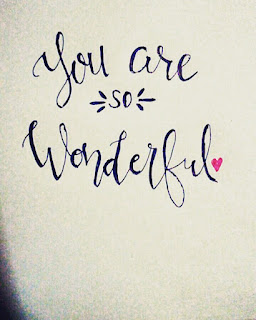 You are
so
Wonderful